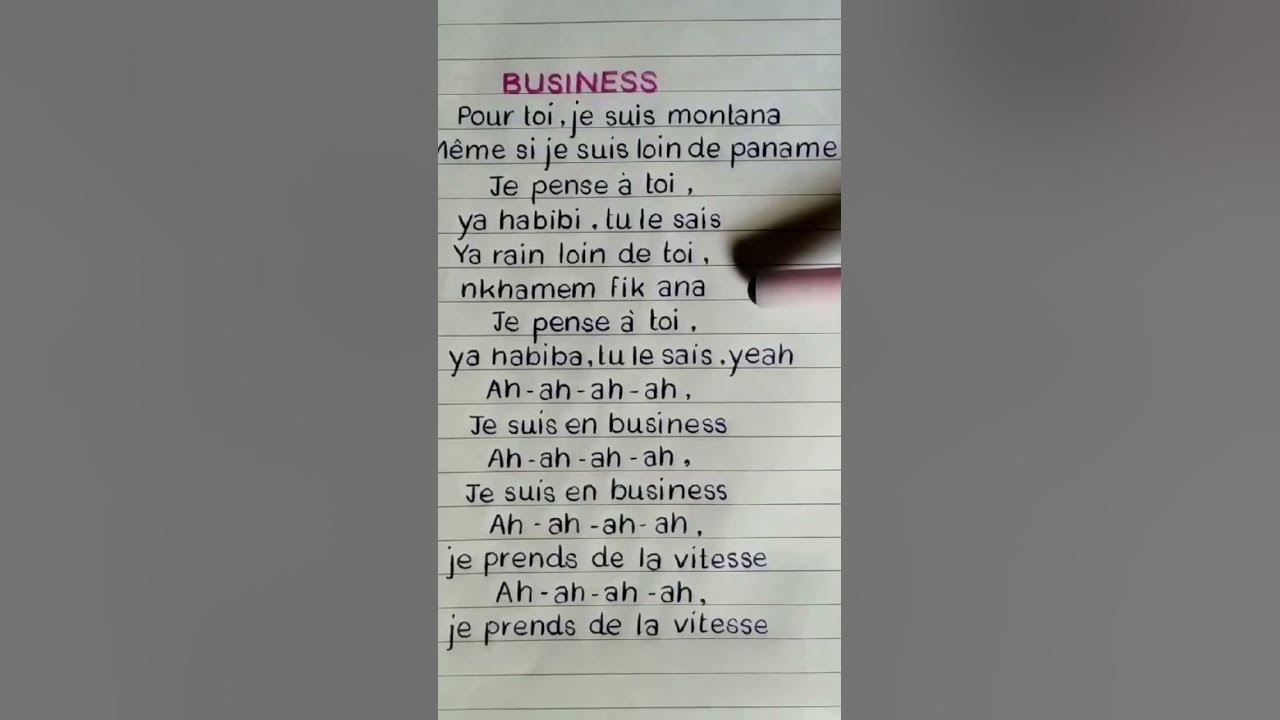 BUSINESS
Pour toi, je suis montana
Même si je suis loin de paname
Je pense à toi,
ya habibi, tu le sais
Ya rain loin de toi,
nkhamem fik ana
Je pense à toi,
ya habiba, tu le sais. yeah
Ah-ah-ah-ah,
Je suis en business
Ah-ah-ah-ah,
Je suis en business
Ah-ah-ah-ah,
je prends de la vitesse
Ah-ah-ah-ah,
je prends de la vitesse